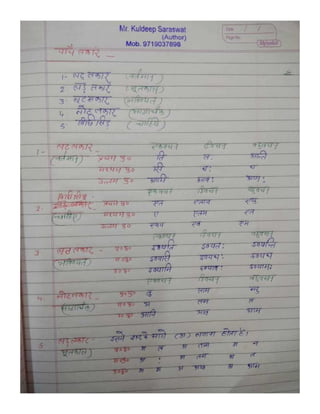 Mr. Kuldeep Saraswat
(Author)
Mob. 9719037898
Date / /
Page No.
पाँच लकार -
1- लट् लकार (वर्तमान)
2 लङ् लकार (भूतकाल)
3 लृट् लकार (भविष्यत)
4 लोट् लकार (आज्ञार्थक)
5 विधिलिङ् (चाहिये)
1- लट् लकार - एकवचन द्विवचन बहुवचन
(वर्तमान) प्रथम पु० ति तः अन्ति
मध्यम पु० सि थः थ
उत्तम पु० आमि आवः आमः
विधिलिङ् एकवचन द्विवचन बहुवचन
2. लकार - प्रथम पु० एत एताम
(चाहिए) मध्यम पु० ए एतम एत
उत्तम पु० एव एम
एकवचन द्विवचन बहुवचन
3 लकार - प्र०पु० इष्यति इष्यतः इष्यन्ति
(भविष्यत) म०पु० इष्यसि इष्यथः इष्यथ
उ०पु० इष्यामि इष्यावः इष्यामः
एकवचन द्विवचन बहुवचन
4. लोट् लकार - प्र०पु० ताम
म०पु० अ तम त
उ०पु० आनि आव आम
5 लङ् लकार - इसमें शब्द से (अ) लगाना होता है।
भूतकाल प्र०पु० अ त अ ताम अ न
म०पु० अ : अ तम अ त
उ०पु० अ म अ आव अ आम